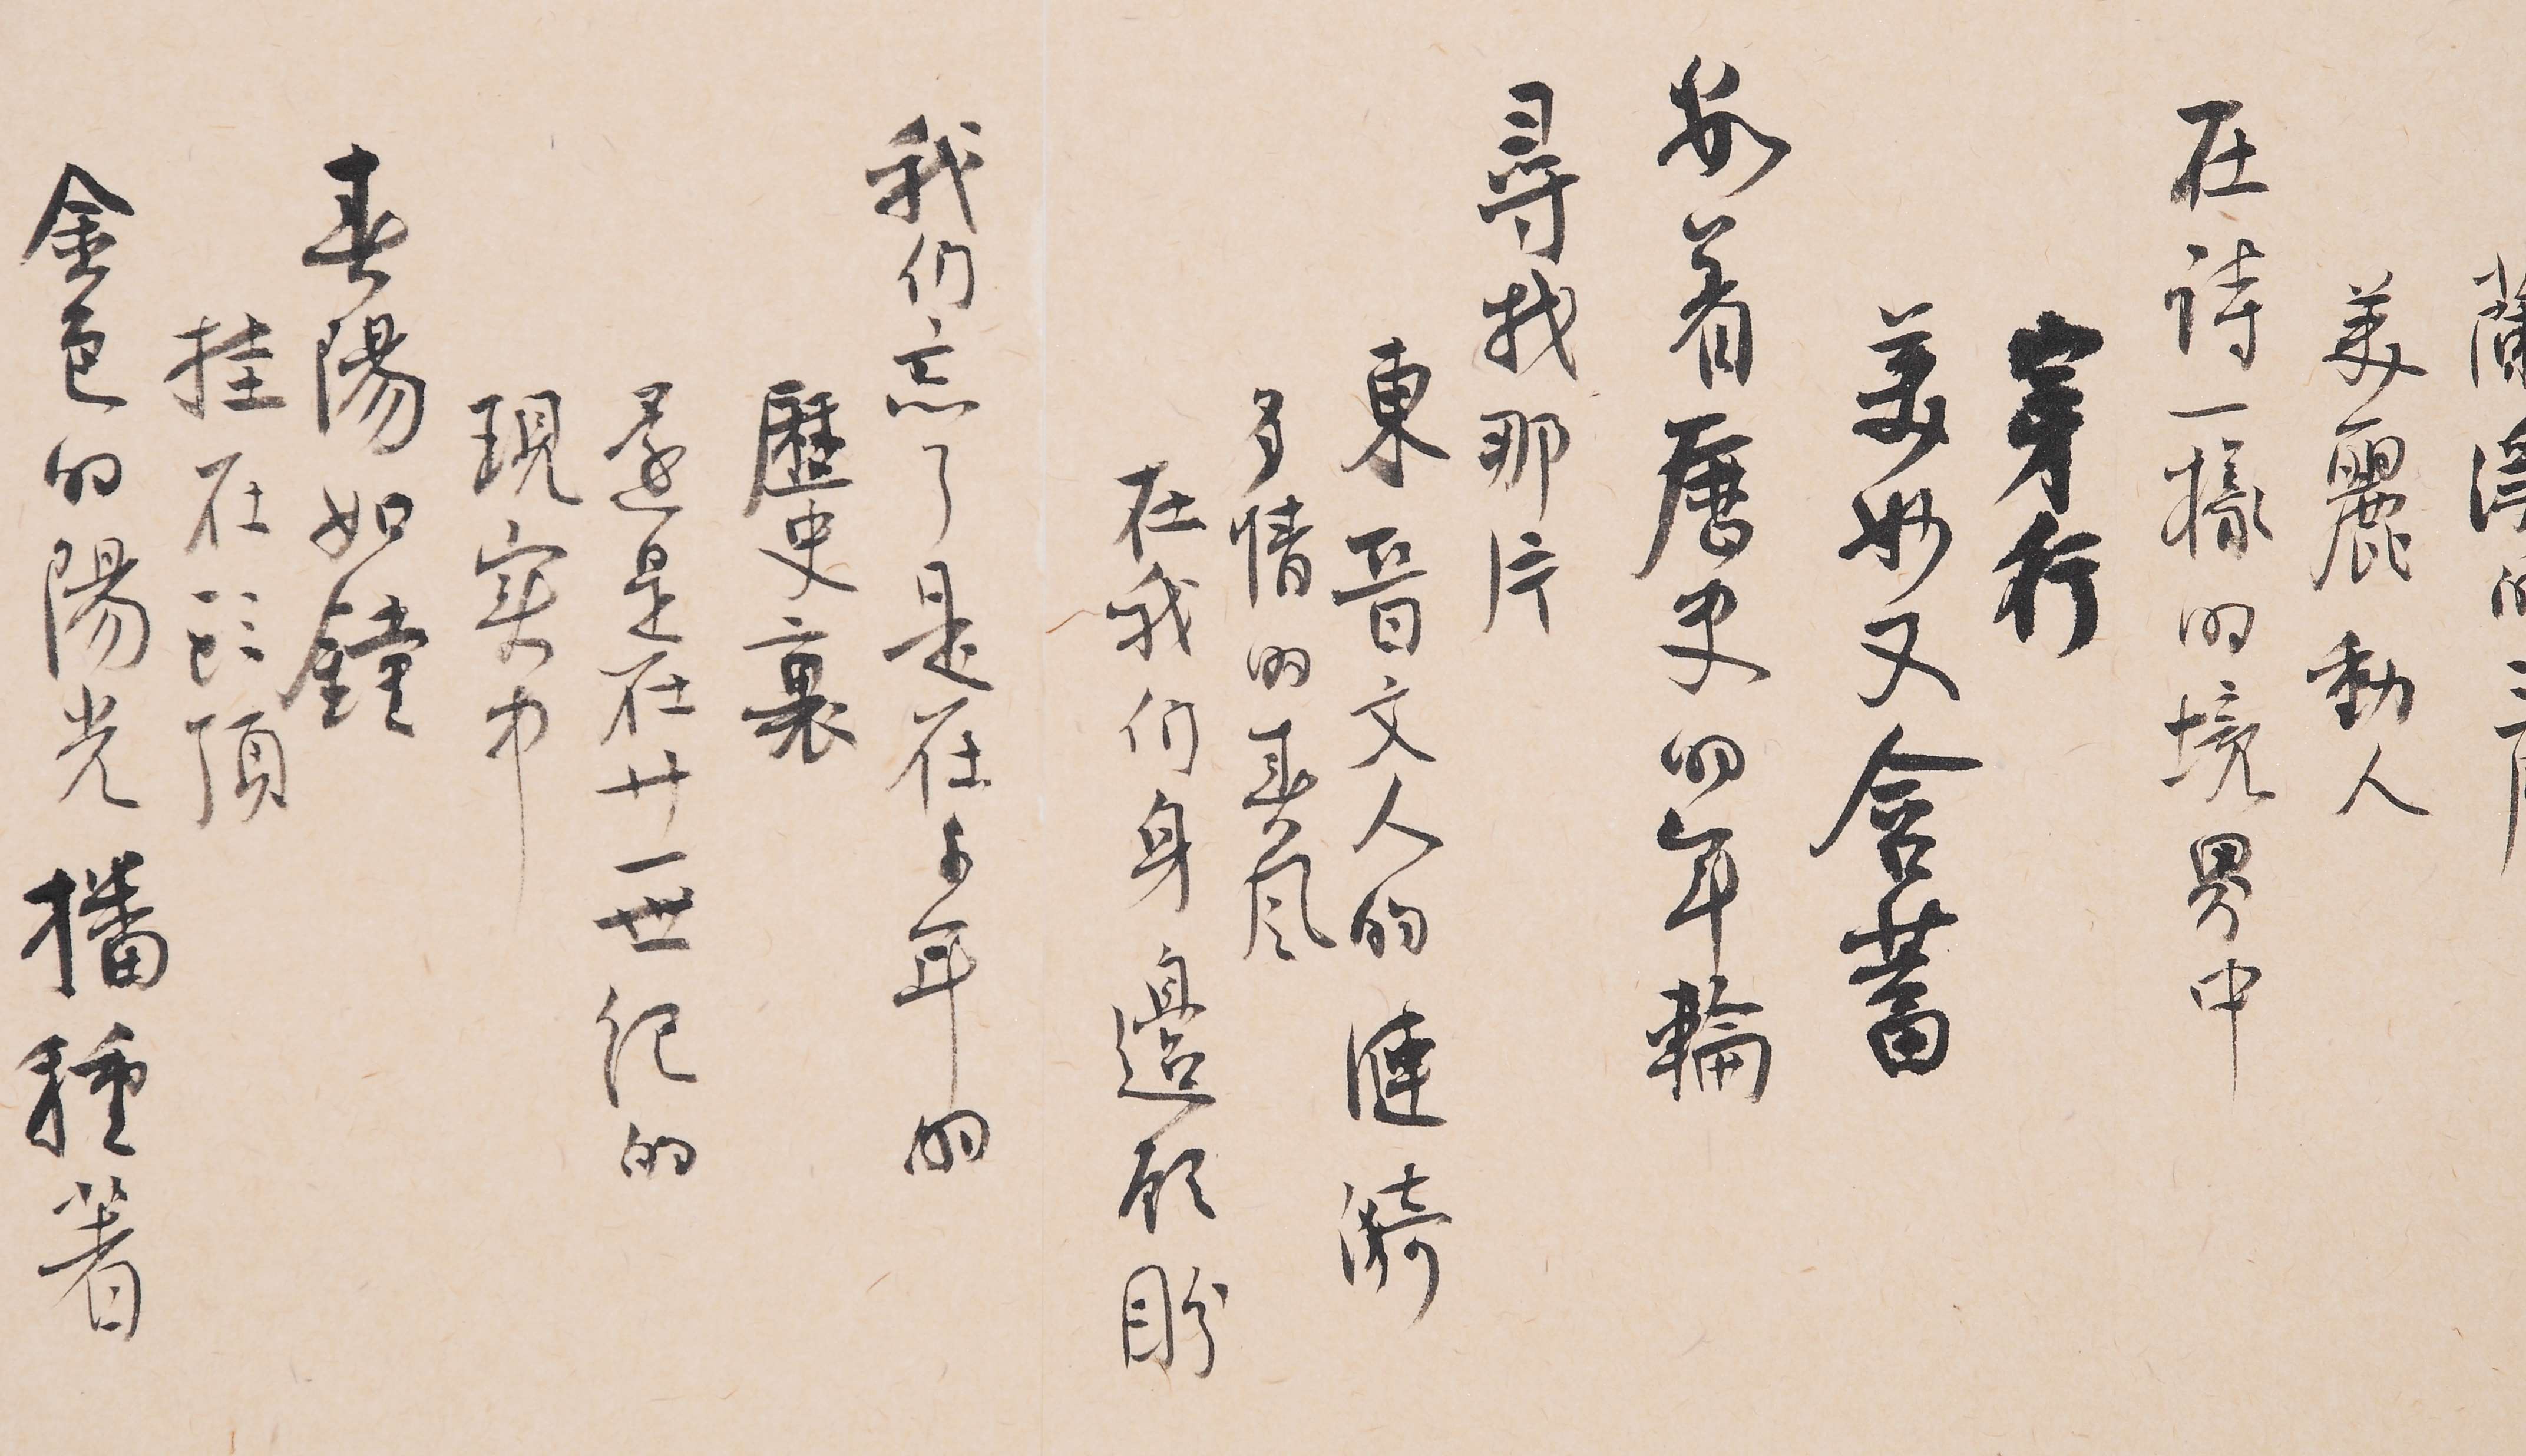 蘭的三月
美麗動人
在诗一樣的境界中
穿行
美妙又含蓄
着曆史的年輪
尋找那片
東晉文人的漣漪
多情的春风
在我们身邊顾盼
我们忘了是在千年的
歷史裏
還是在廿一世纪的
現実中
春陽如鐘
挂在頭頂
金色的陽光播種着